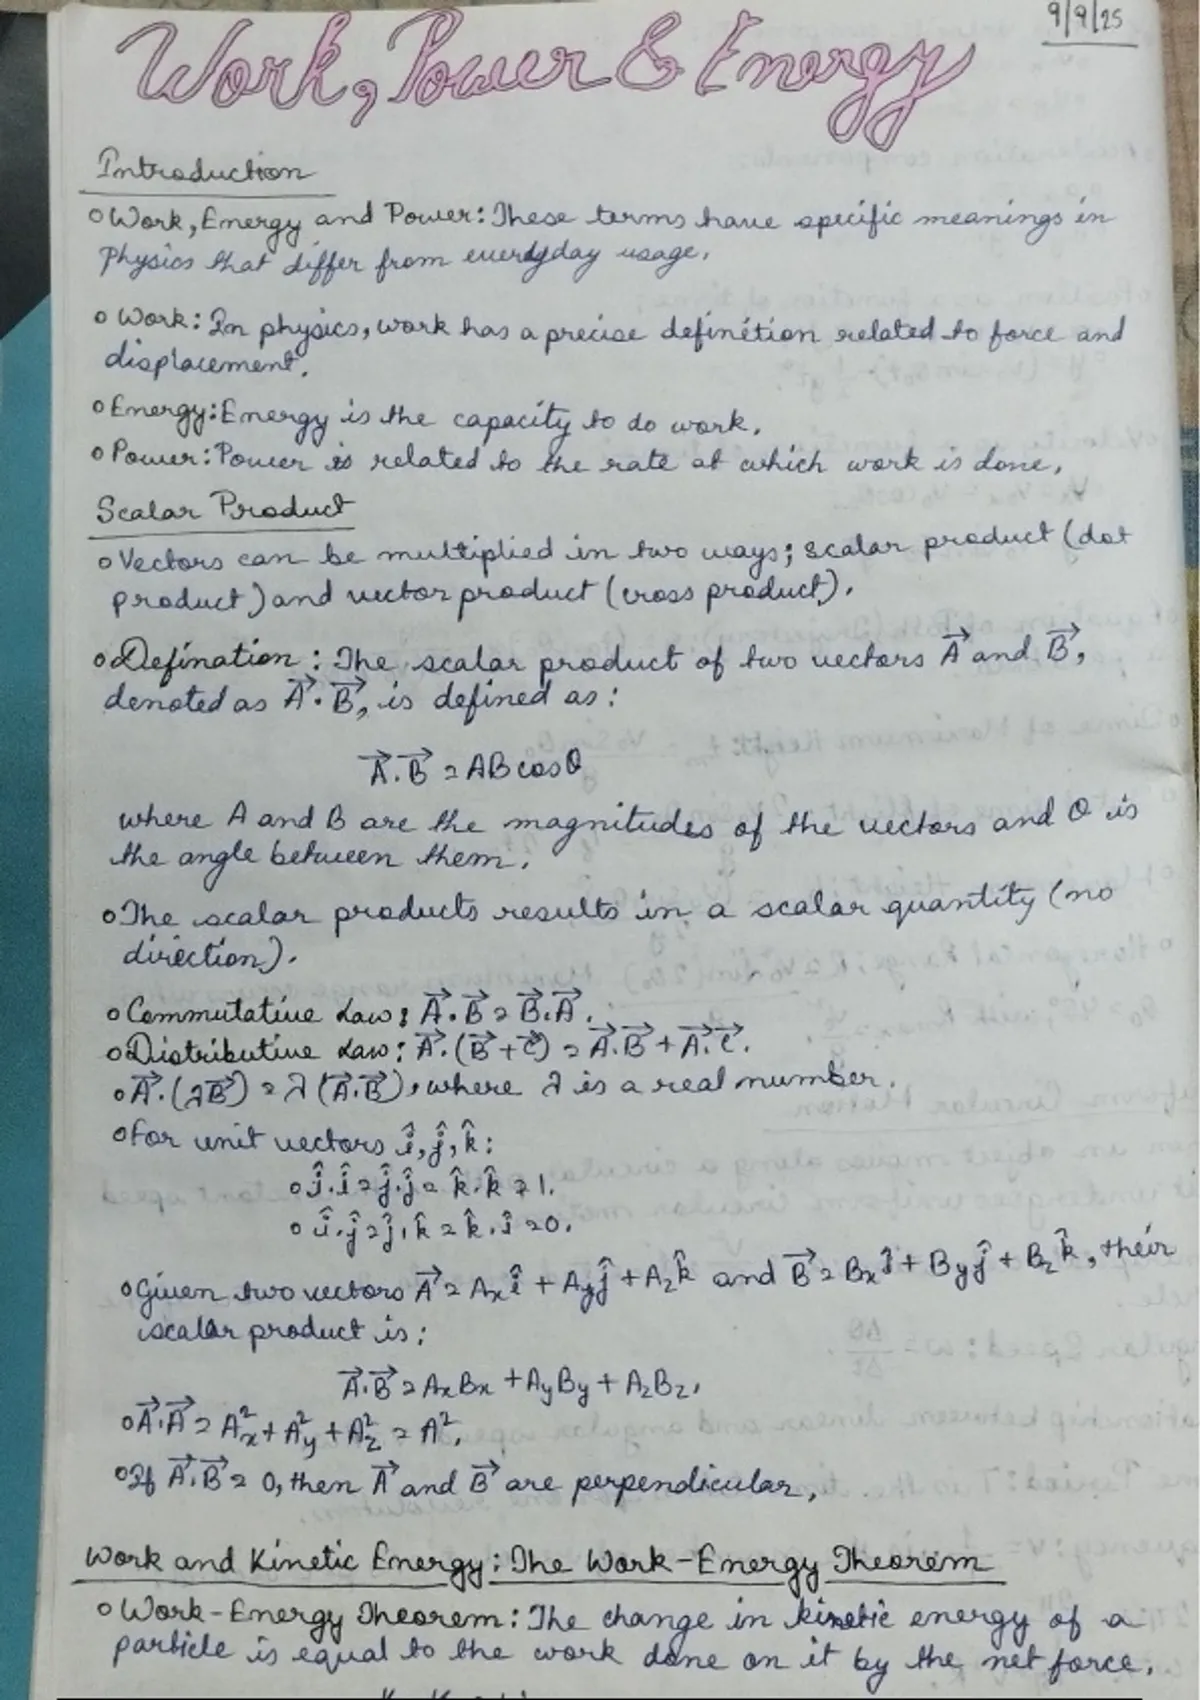 9/9/25
Work, Power & Energy
Introduction
o Work, Energy and Power: These terms have specific meanings in
Physics that differ from everyday usage.
o Work: In physics, work has a precise definition related to force and
displacement.
o Energy: Energy is the capacity to do work.
o Power: Power is related to the rate at which work is done.
Scalar Product
o Vectors can be multiplied in two ways; scalar product (dot
product) and vector product (cross product).
o Defination: The scalar product of two vectors A⃗ and B⃗,
denoted as A⃗·B⃗, is defined as:
A⃗·B⃗ = AB cosθ
where A and B are the magnitudes of the vectors and θ is
the angle between them.
o The scalar products results in a scalar quantity (no
direction).
o Commutative Law: A⃗·B⃗ = B⃗·A⃗.
o Distributive Law: A⃗·(B⃗+C⃗) = A⃗·B⃗ + A⃗·C⃗.
o A⃗·(λB⃗) = λ(A⃗·B⃗), where λ is a real number.
o For unit vectors î, ĵ, k̂:
o î·î = ĵ·ĵ = k̂·k̂ = 1.
o î·ĵ = ĵ·k̂ = k̂·î = 0.
o Given two vectors A⃗ = Axî + Ayĵ + Azk̂ and B⃗ = Bxî + Byĵ + Bzk̂, their
scalar product is:
A⃗·B⃗ = AxBx + AyBy + AzBz.
o A⃗·A⃗ = Ax² + Ay² + Az² = A².
o If A⃗·B⃗ = 0, then A⃗ and B⃗ are perpendicular.
Work and Kinetic Energy: The Work-Energy Theorem
o Work-Energy Theorem: The change in kinetic energy of a
particle is equal to the work done on it by the net force.